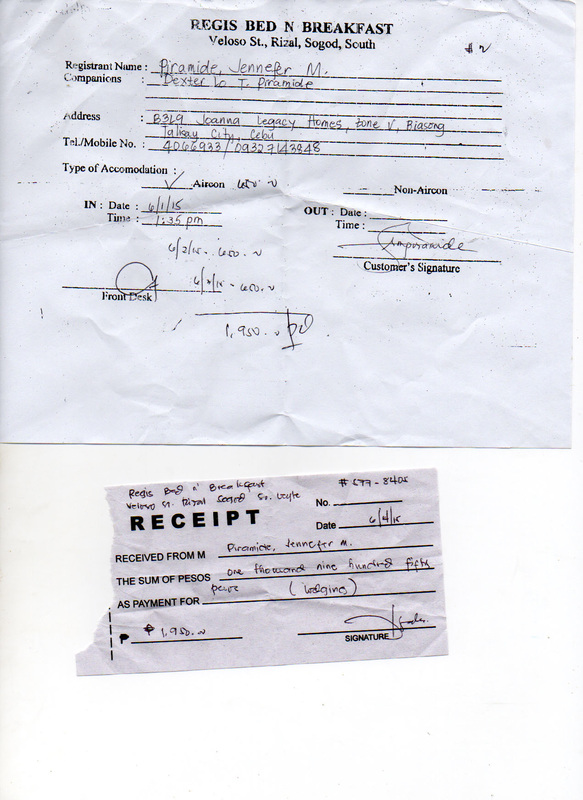 REGIS BED N BREAKFAST
Veloso St., Rizal, Sogod, South
# 2
Registrant Name : Piramide, Jennefer M.
Companions : Dexter Lo T. Piramide
Address : B3L9 Joanna Legacy Homes, Zone V, Biasong
Talisay City, Cebu
Tel./Mobile No. : 4066933/09327143848
Type of Accomodation :
Aircon 650.~
Non-Aircon
IN : Date : 6/1/15
OUT : Date :
Time : 1:35 pm
Time :
6/2/15 - 650.~
Customer's Signature
6/3/15 - 650.~
Front Desk
1,950.~ pd
Regis Bed n' Breakfast
# 577-8405
Veloso St. Rizal Sogod So. Leyte
RECEIPT
No.
Date 6/4/15
RECEIVED FROM M Piramide, Jennefer M.
THE SUM OF PESOS one thousand nine hundred fifty
pesos (lodging)
AS PAYMENT FOR
₱ ₱ 1,950.~
SIGNATURE